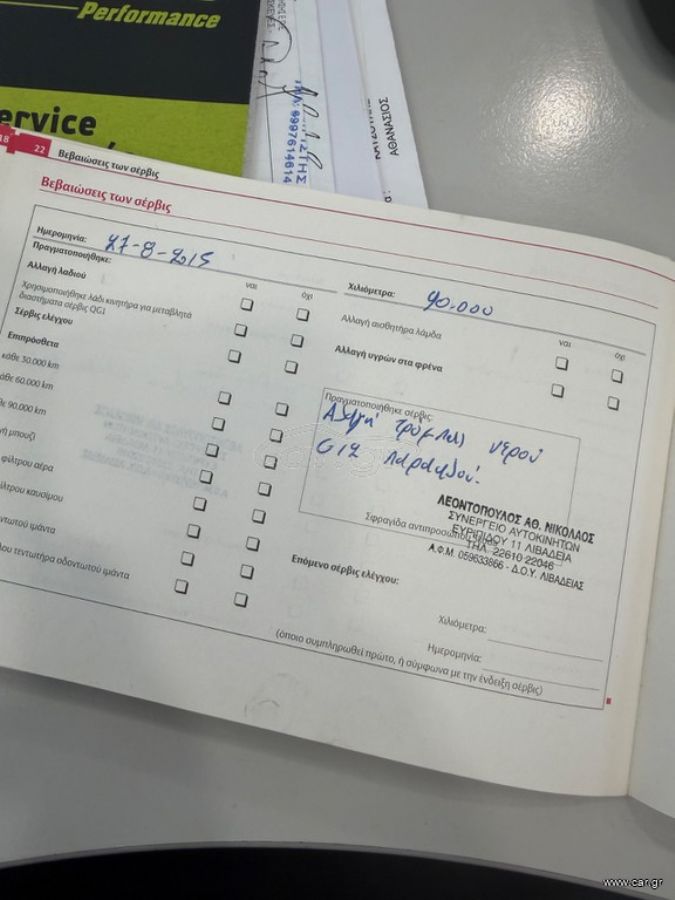 Performance
ervice
ΑΘΑΝΑΣΙΟΣ
18
22
Βεβαιώσεις των σέρβις
Βεβαιώσεις των σέρβις
Ημερομηνία: 27-8-2015
Χιλιόμετρα: 90.000
Πραγματοποιήθηκε:
ναι
όχι
Αλλαγή λαδιού
Χρησιμοποιήθηκε λάδι κινητήρα για μεταβλητά
διαστήματα σέρβις QG1
Σέρβις ελέγχου
Επιπρόσθετα
κάθε 30.000 km
άθε 60.000 km
θε 90.000 km
γή μπουζί
φίλτρου αέρα
ίλτρου καυσίμου
οντωτού ιμάντα
λου τεντωτήρα οδοντωτού ιμάντα
Αλλαγή αισθητήρα λάμδα
ναι
όχι
Αλλαγή υγρών στα φρένα
Πραγματοποιήθηκε σέρβις:
νερού
G12
ΛΕΟΝΤΟΠΟΥΛΟΣ ΑΘ. ΝΙΚΟΛΑΟΣ
ΣΥΝΕΡΓΕΙΟ ΑΥΤΟΚΙΝΗΤΩΝ
ΕΥΡΙΠΙΔΟΥ 11 ΛΙΒΑΔΕΙΑ
Σφραγίδα αντιπροσώπου
ΤΗΛ. 22610 22046
Α.Φ.Μ. 059633866 - Δ.Ο.Υ. ΛΙΒΑΔΕΙΑΣ
Επόμενο σέρβις ελέγχου:
Χιλιόμετρα:
Ημερομηνία:
(όποιο συμπληρωθεί πρώτο, ή σύμφωνα με την ένδειξη σέρβις)
www.car.gr